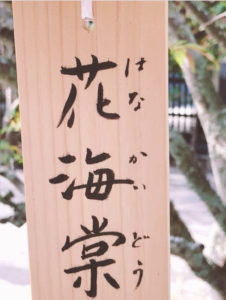 花海棠
はなかいどう